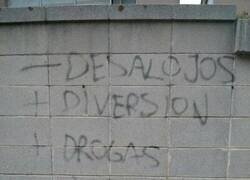 - DESALOJOS
+ DIVERSION
+ DROGAS